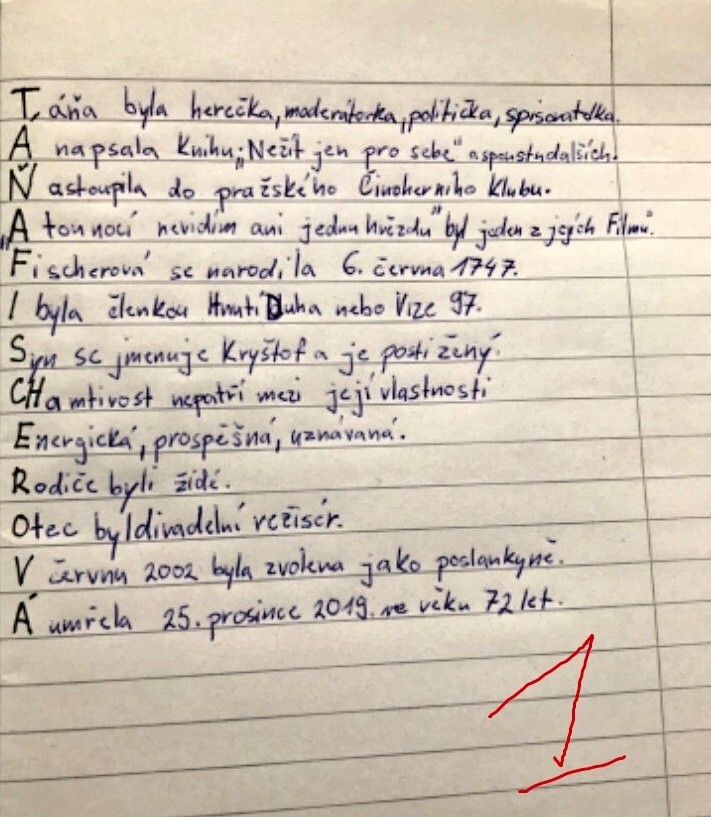 Táňa byla herečka, moderátorka, politička, spisovatelka.
A napsala knihu „Nežít jen pro sebe" a spoustu dalších.
Ňastoupila do pražského Činoherního klubu.
„A tou nocí nevidím ani jednu hvězdu" byl jeden z jejích Filmů.
Fischerová se narodila 6. června 1747.
I byla členkou Hnutí Duha nebo Vize 97.
Syn se jmenuje Kryštof a je postižený.
CHamtivost nepatří mezi její vlastnosti
Energická, prospěšná, uznávaná.
Rodiče byli židé.
Otec byl divadelní režisér.
V červnu 2002 byla zvolena jako poslankyně.
Á umřela 25. prosince 2019. ve věku 72 let.
1